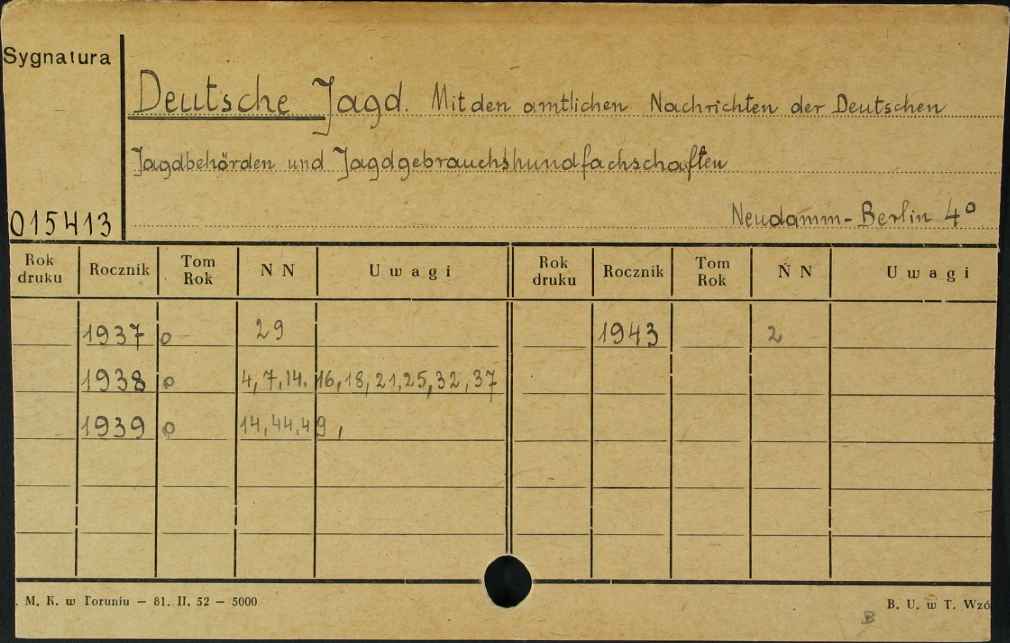 Sygnatura
Deutsche Jagd. Mit den amtlichen Nachrichten der Deutschen
Jagdbehörden und Jagdgebrauchshundfachschaften
Neudamm-Berlin 4°
015413
Rok druku Rocznik Tom Rok N N U w a g i Rok druku Rocznik Tom Rok N N U w a g i
1937 o 29 1943 2
1938 o 4,7,14. 16,18,21,25,32,37
1939 o 14,44,49,
. M. K. w Toruniu — 81. II. 52 — 5000 B. U. w T. Wzó
B